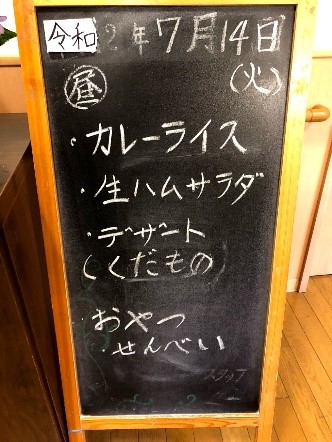 令和2年7月14日
(火)
昼
・カレーライス
・生ハムサラダ
・デザート
(くだもの)
・おやつ
・せんべい